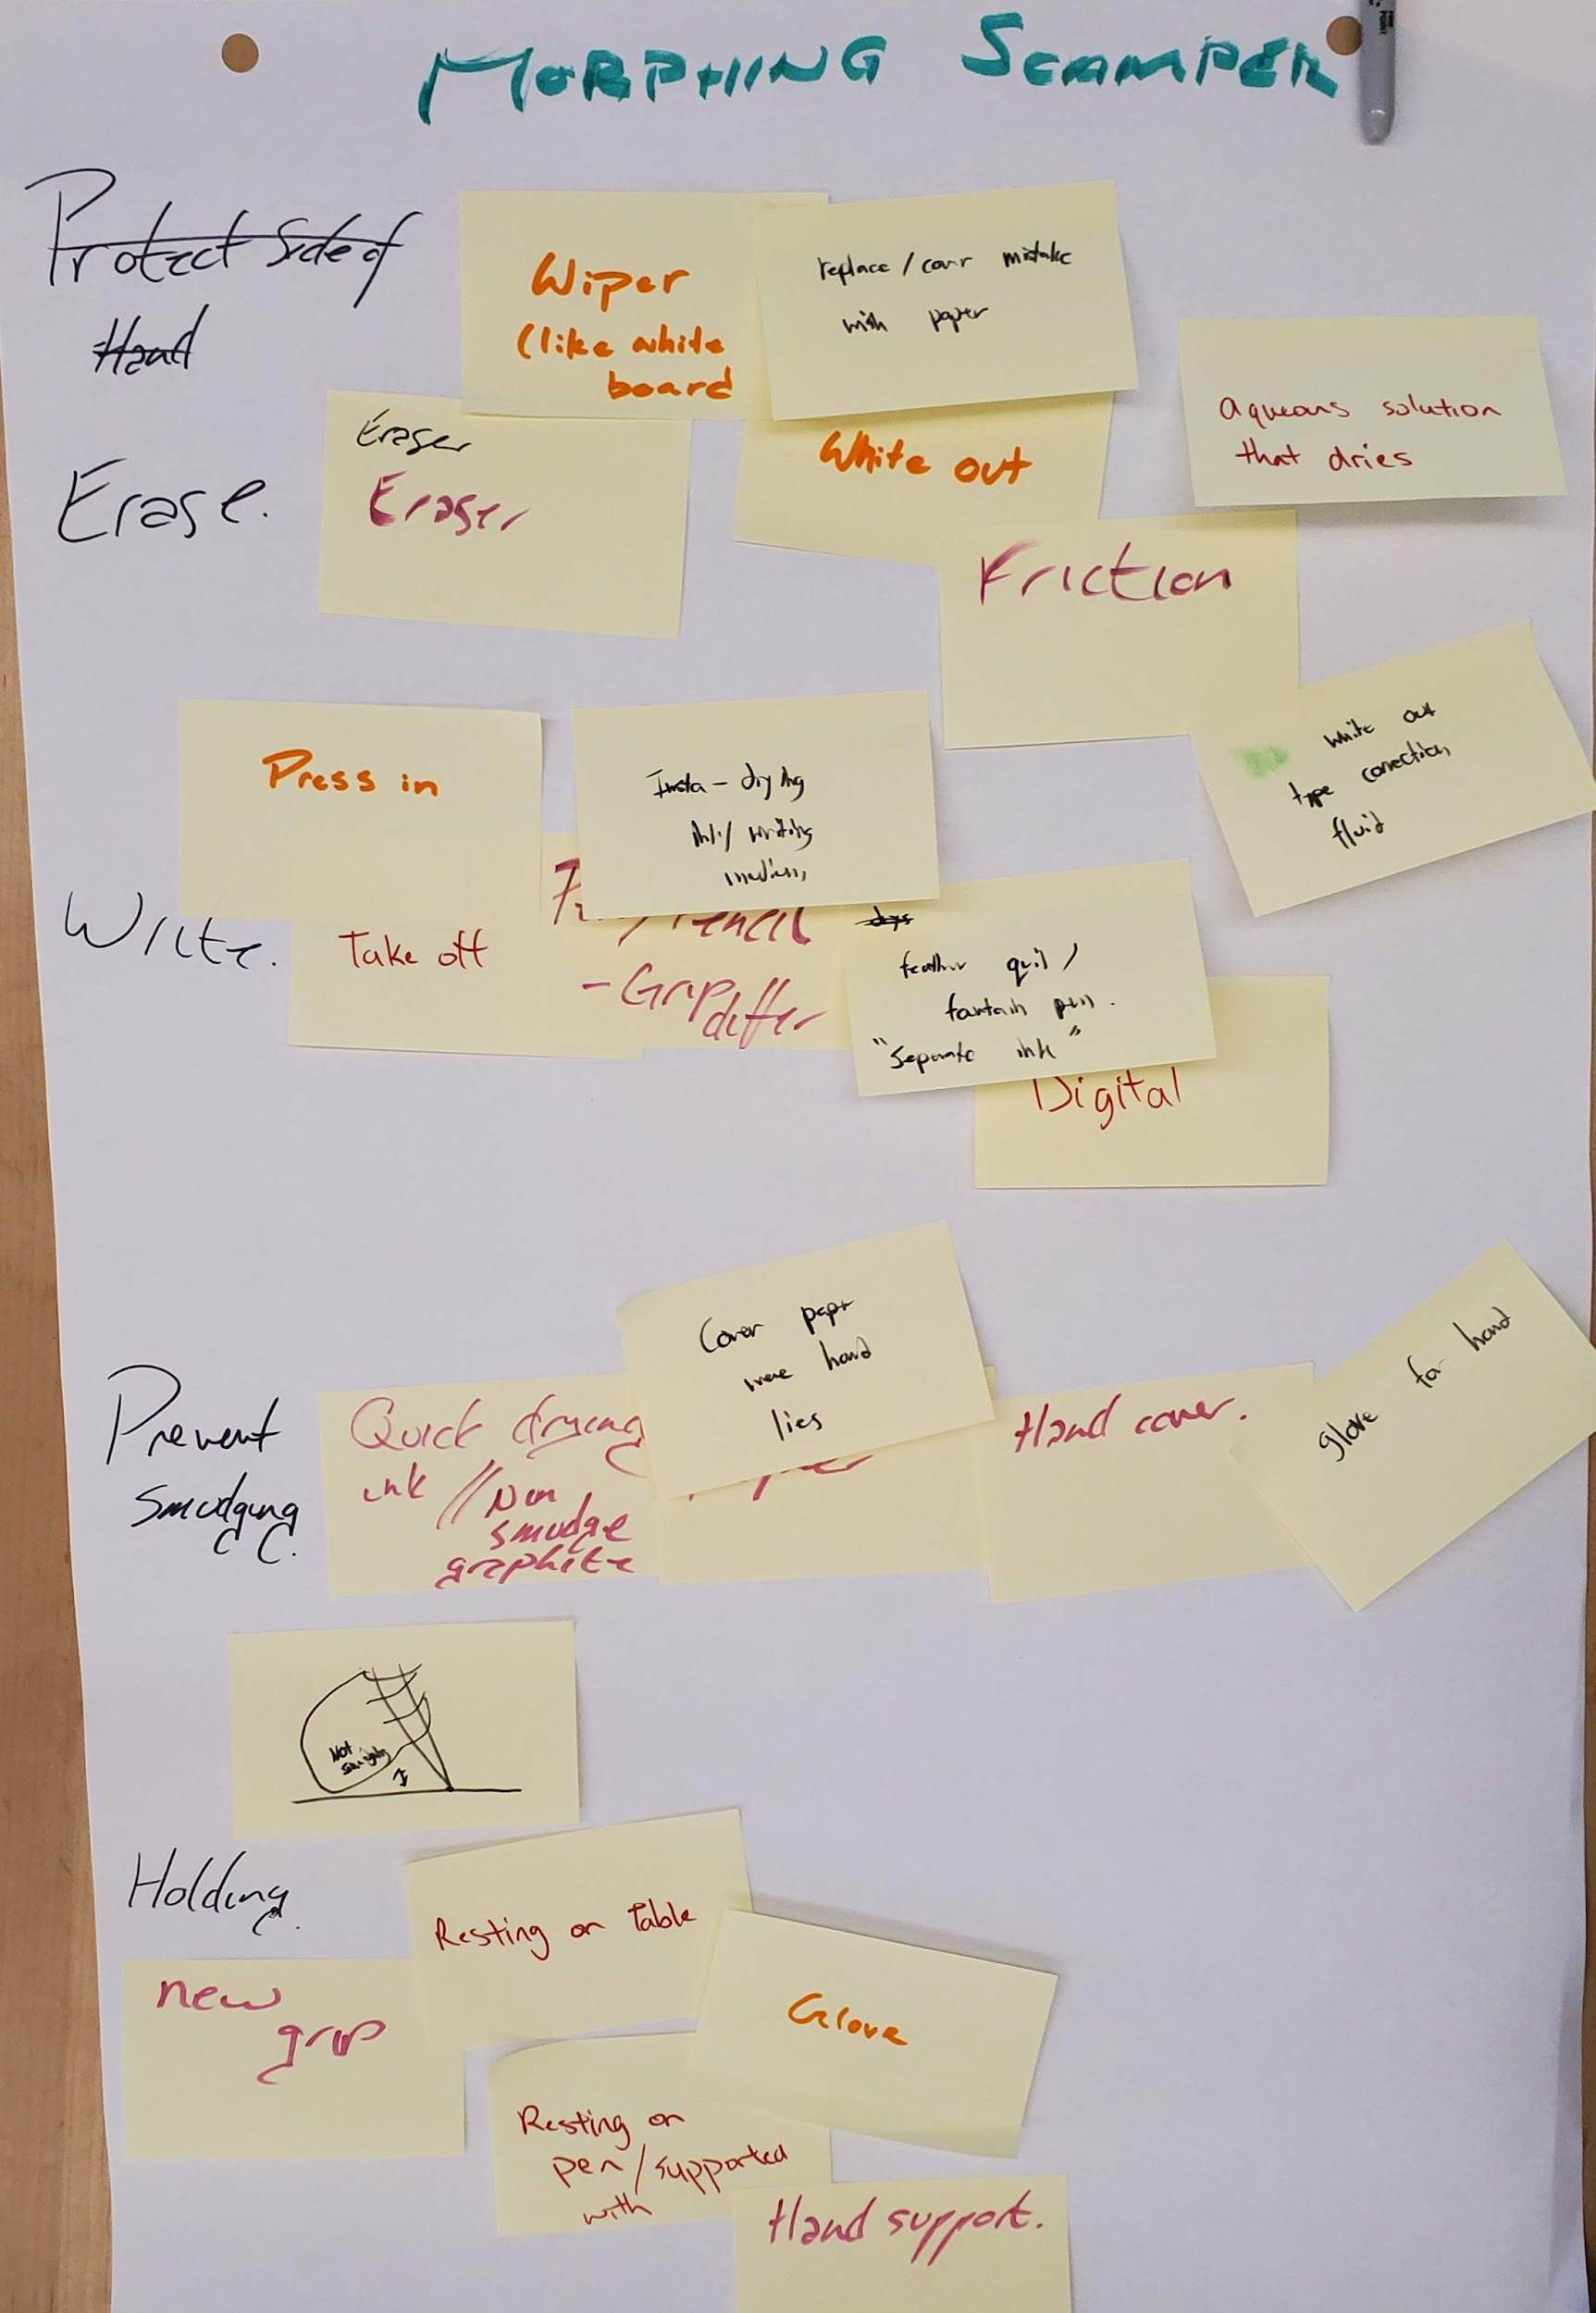 MORPHING SCAMPER
Protect Side of
Hand
Wiper
(like white
board
replace / cover mistake
with paper
aqueous solution
that dries
Erase.
Eraser
Eraser
White out
Friction
Press in
Insta-drying
ink/ writing
medium,
white out
type correction
fluid
Write.
Take off
Pencil
- Grip
differ
days
feather quil /
fountain pen.
"separate ink"
Digital
Prevent
Smudging.
Quick drying
ink // Non
smudge
graphite
Cover paper
were hand
lies
Hand cover.
glove for hand
Not
Holding.
new
grip
Resting on Table
Glove
Resting on
pen / supported
with
Hand support.